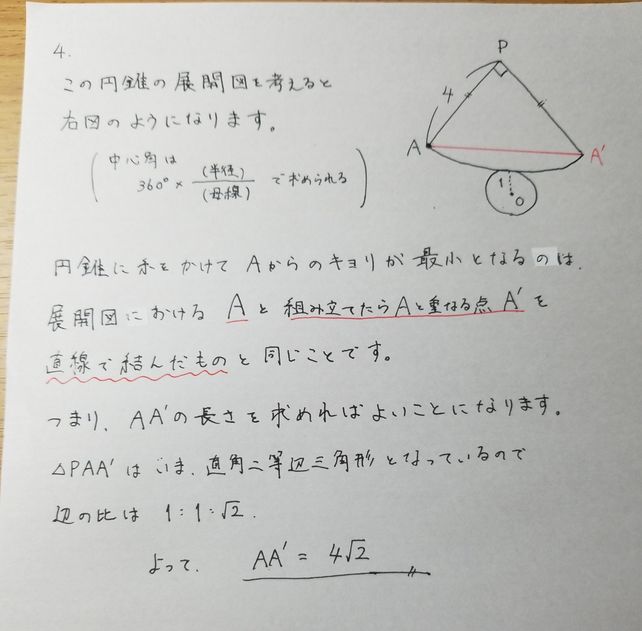 4.
この円錐の展開図を考えると
右図のようになります。
(中心角は
360° × (半径)/(母線) で求められる)
P
4
A
A'
1
O
円錐に糸をかけて Aからのキョリが 最小となるのは、
展開図における A と 組み立てたらAと重なる点 A' を
直線で結んだもの と 同じことです。
つまり、AA'の長さを求めればよいことになります。
△PAA' は いま、直角二等辺三角形となっているので
辺の比は 1:1:√2.
よって、 AA' = 4√2